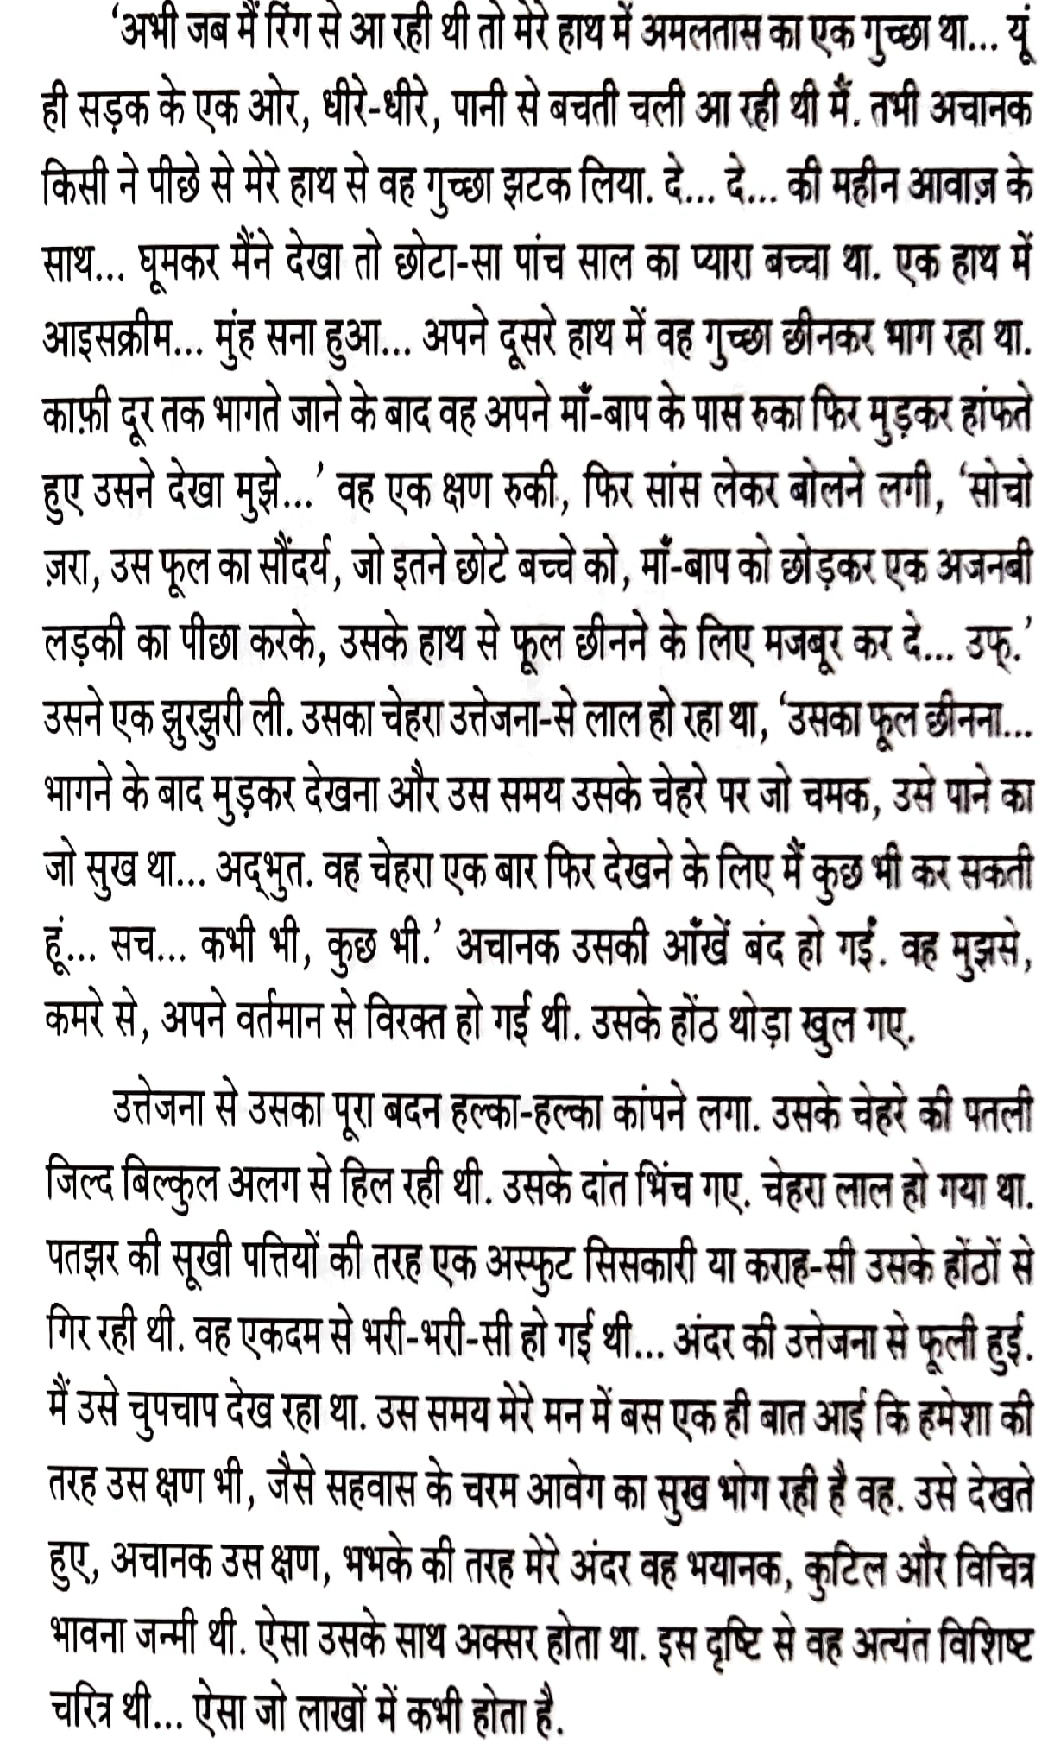 ‘अभी जब मैं रिंग से आ रही थी तो मेरे हाथ में अमलतास का एक गुच्छा था... यूं
ही सड़क के एक ओर, धीरे-धीरे, पानी से बचती चली आ रही थी मैं. तभी अचानक
किसी ने पीछे से मेरे हाथ से वह गुच्छा झटक लिया. दे... दे... की महीन आवाज़ के
साथ... घूमकर मैंने देखा तो छोटा-सा पांच साल का प्यारा बच्चा था. एक हाथ में
आइसक्रीम... मुंह सना हुआ... अपने दूसरे हाथ में वह गुच्छा छीनकर भाग रहा था.
काफ़ी दूर तक भागते जाने के बाद वह अपने माँ-बाप के पास रुका फिर मुड़कर हांफते
हुए उसने देखा मुझे...’ वह एक क्षण रुकी, फिर सांस लेकर बोलने लगी, ‘सोचो
ज़रा, उस फूल का सौंदर्य, जो इतने छोटे बच्चे को, माँ-बाप को छोड़कर एक अजनबी
लड़की का पीछा करके, उसके हाथ से फूल छीनने के लिए मजबूर कर दे... उफ्.’
उसने एक झुरझुरी ली. उसका चेहरा उत्तेजना-से लाल हो रहा था, ‘उसका फूल छीनना...
भागने के बाद मुड़कर देखना और उस समय उसके चेहरे पर जो चमक, उसे पाने का
जो सुख था... अद्‌भुत. वह चेहरा एक बार फिर देखने के लिए मैं कुछ भी कर सकती
हूं... सच... कभी भी, कुछ भी.’ अचानक उसकी आँखें बंद हो गईं. वह मुझसे,
कमरे से, अपने वर्तमान से विरक्त हो गई थी. उसके होंठ थोड़ा खुल गए.
उत्तेजना से उसका पूरा बदन हल्का-हल्का कांपने लगा. उसके चेहरे की पतली
जिल्द बिल्कुल अलग से हिल रही थी. उसके दांत भिंच गए. चेहरा लाल हो गया था.
पतझर की सूखी पत्तियों की तरह एक अस्फुट सिसकारी या कराह-सी उसके होंठों से
गिर रही थी. वह एकदम से भरी-भरी-सी हो गई थी... अंदर की उत्तेजना से फूली हुई.
मैं उसे चुपचाप देख रहा था. उस समय मेरे मन में बस एक ही बात आई कि हमेशा की
तरह उस क्षण भी, जैसे सहवास के चरम आवेग का सुख भोग रही है वह. उसे देखते
हुए, अचानक उस क्षण, भभके की तरह मेरे अंदर वह भयानक, कुटिल और विचित्र
भावना जन्मी थी. ऐसा उसके साथ अक्सर होता था. इस दृष्टि से वह अत्यंत विशिष्ट
चरित्र थी... ऐसा जो लाखों में कभी होता है.